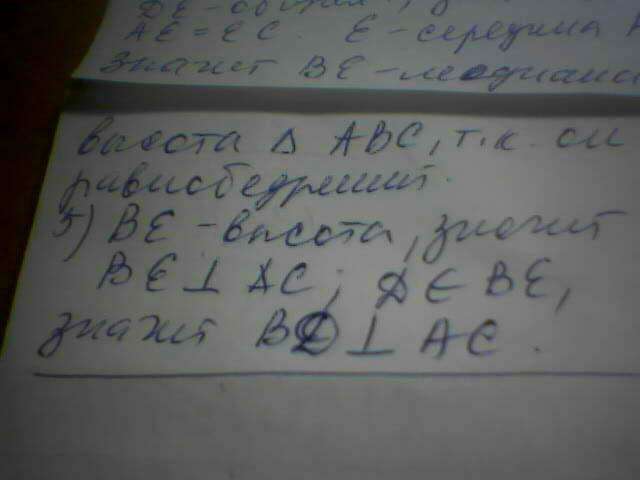 DE - общая,
AE = EC. E - середина
Значит BE - медиана
высота Δ ABC, т.к. он
равнобедренный.
5) BE - высота, значит
BE ⊥ AC; D ∈ BE,
значит BD ⊥ AC.